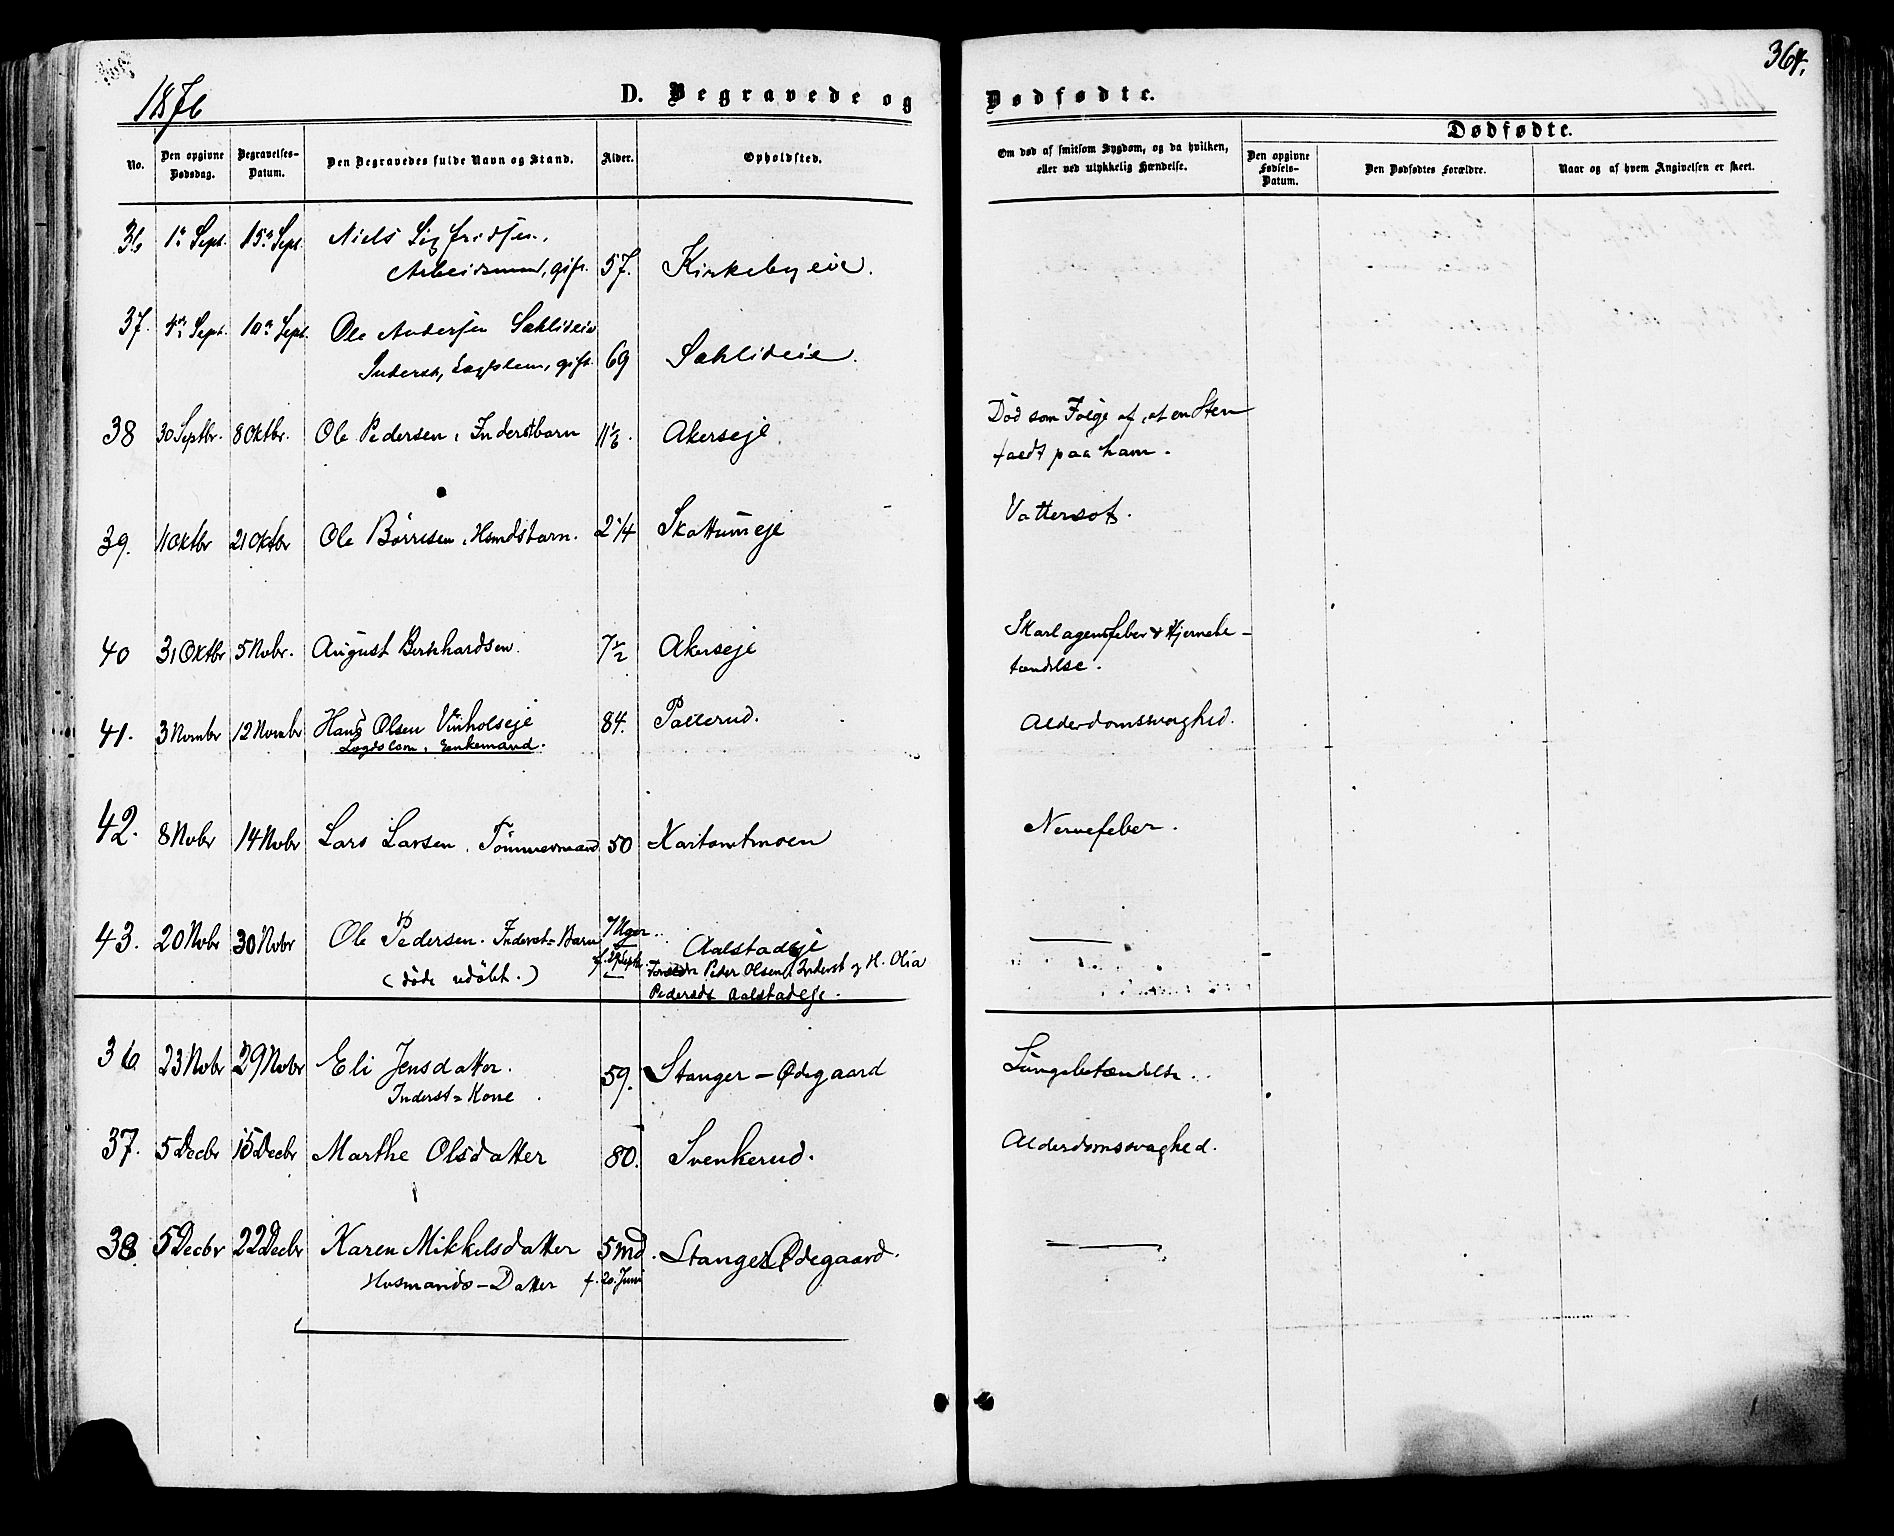 1876
364.
D. Begravede og Dødfødte.
No.
Den opgivne Dødsdag.
Begravelses-Datum.
Den Begravedes fulde Navn og Stand.
Alder.
Opholdsted.
Om død af smitsom Sygdom, og da hvilken, eller ved ulykkelig Hændelse.
Dødfødte.
Den opgivne Fødsels-Datum.
Den Dødfødtes Forældre.
Naar og af hvem Angivelsen er skeet.
36 1e Sept. 15e Sept. Niels Sigfridsen,
Arbeidsmand, gift. 57. Kirkebyeie.
37. 4de Sept. 10de Sept. Ole Andersen Sæhlideie
Inderst, Lægdslem, gift. 69 Sæhlideie.
38 30 Septbr. 8 Oktbr. Ole Pedersen, Inderstbarn Akerseje. Død som Følge af, at en Sten
faldt paa ham.
39. 11 Oktbr 21 Oktbr Ole Børresen, Hsmdsbarn. 2 1/4 Skattumeje Vattersot.
40 31 Oktbr 5 Nvbr. August Bernhardsen. 7 1/2 Akerseje Skarlagensfeber & Hjernebe-
tændelse.
41. 3 Novmbr 12 Novmbr Hans Olsen Vinholseje 84. Pallerud. Alderdomssvaghed.
Lægdslem, Enkemand.
42. 8 Nvbr 14 Nvbr Lars Larsen, Tømmermand 50 Nervefeber.
43. 20 Nvbr 30 Nvbr Ole Pedersen. Inderst=Barn 7 Uger. Aalstadeje
(døde udøbt.) f. 29 Septr. Forældre Peder Olsen, Inderst og H. Olia
Pedersdt Aalstadeje.
36 23 Nvbr 29 Nvbr Eli Jensdatter. 59. Stanger-Ødegaard Lungebetændelse.
Inderst=Kone.
37. 5 Decbr 15 Decbr Marthe Olsdatter 80. Svenkerud. Alderdomssvaghed.
38. 5 Decbr 22 Decbr Karen Mikkelsdatter 5 Md. Stanger Ødegaard.
Husmands-Datter f. 20. Juni